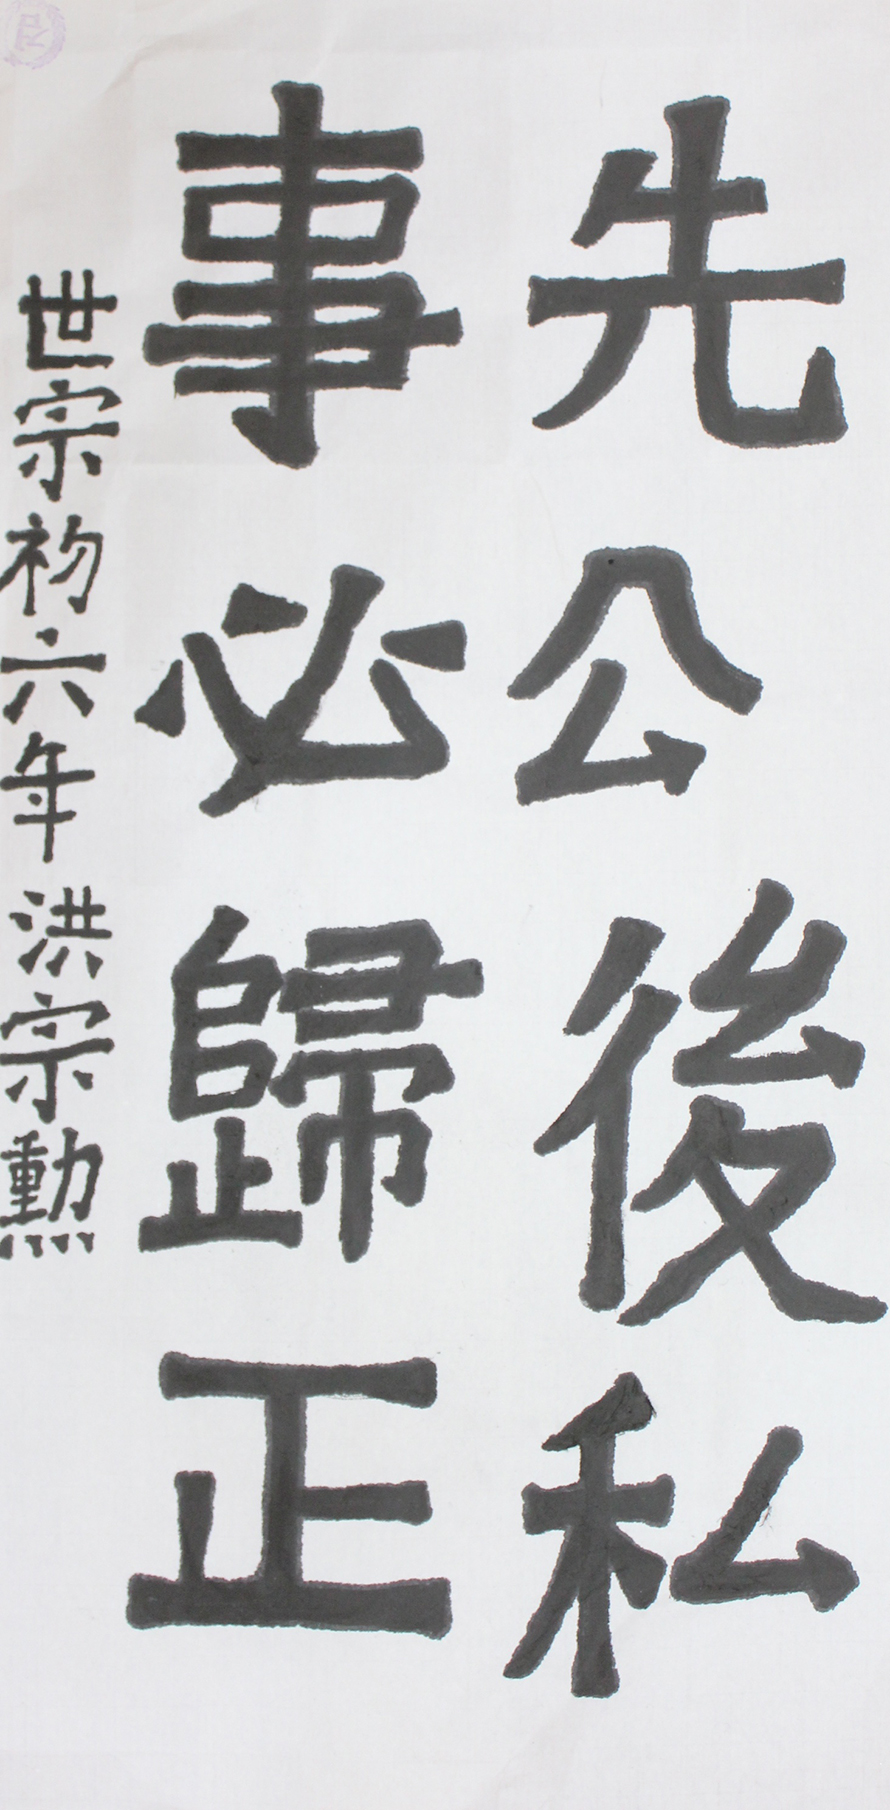 先公後私
事必歸正
世宗初六年 洪宗勳